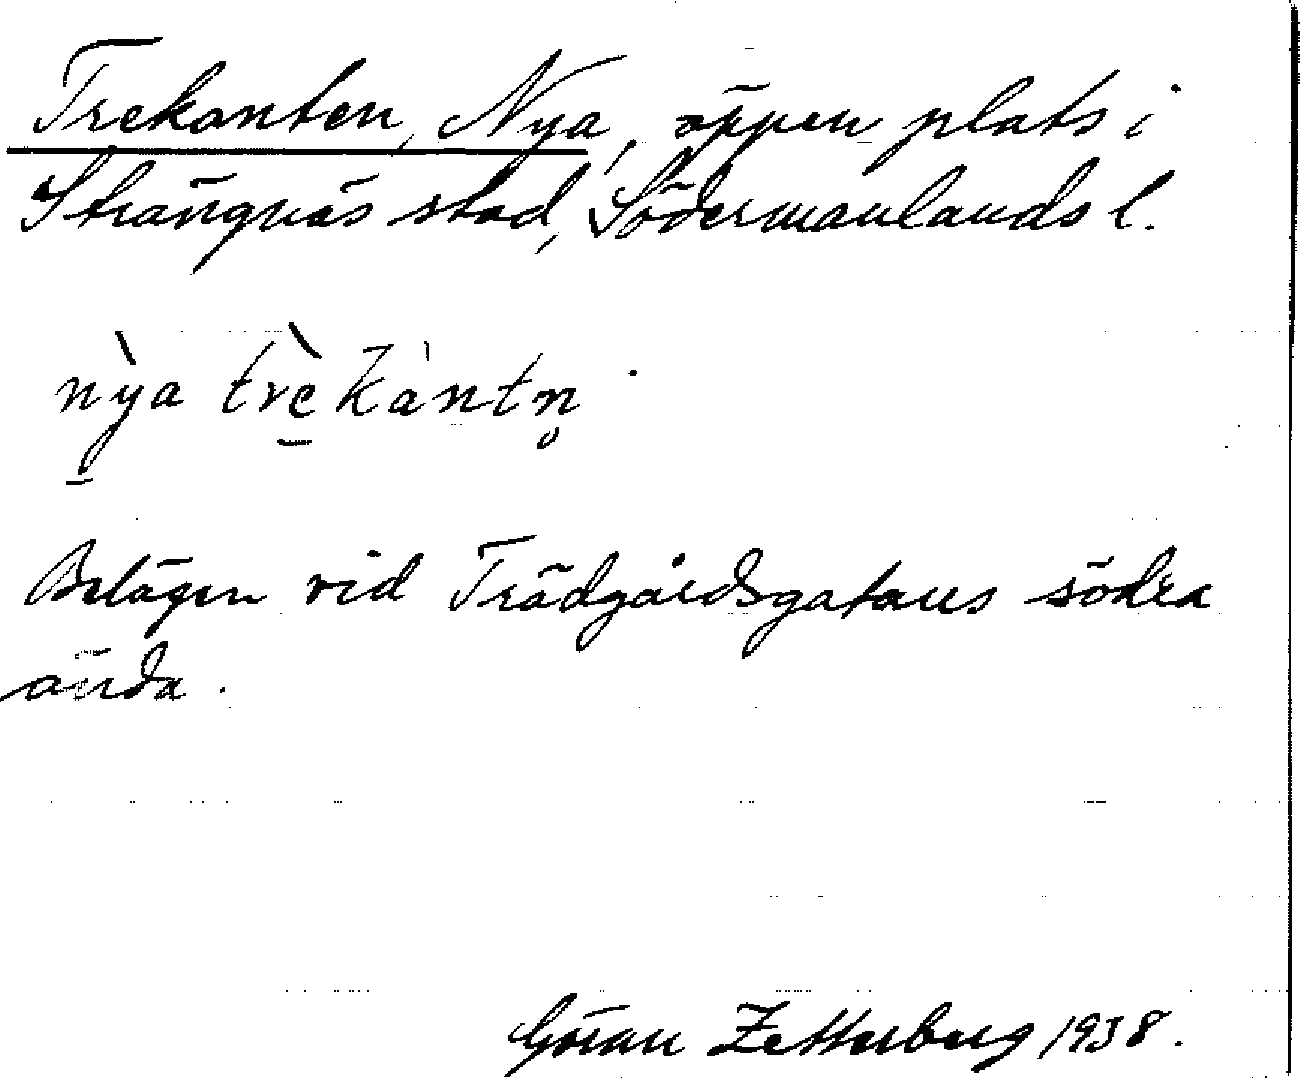 Trekanten, Nya, öppen plats i
Strängnäs stad, Södermanlands l.
nỳ̠a trè̠kàntn̥.
Belägen vid Trädgårdsgatans södra
ända.
Göran Zetterberg 1938.